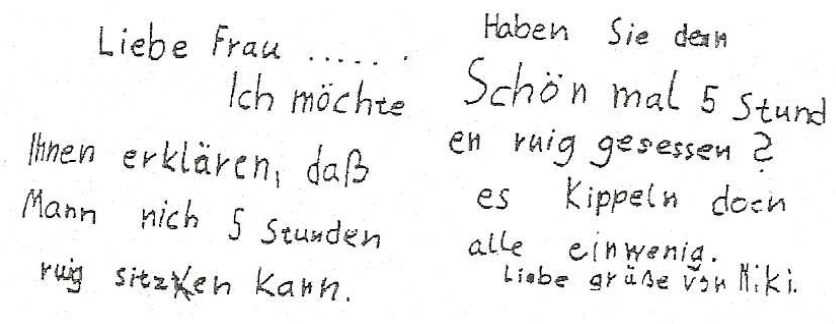 Liebe Frau ......
Ich möchte
Ihnen erklären, daß
Mann nich 5 Stunden
ruig sitzen kann.
Haben Sie denn
Schön mal 5 Stund
en ruig gesessen?
es Kippeln doch
alle einwenig.
Liebe grüße von Niki.